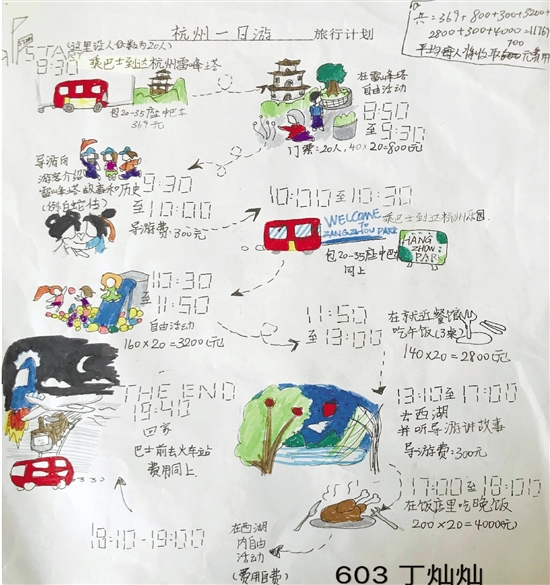 杭州一日游 旅行计划
共=369+800+300+3200+
2800+300+4000=11769
700
平均每人将收取 元费用
START (这里设人份数为20人)
9:30 乘巴士到达杭州雷峰塔
包20-35座中巴车
369元
在雷峰塔
自由活动
8:50
至
9:30
门票:20人,40×20=800元
导游向
游客介绍
雷峰塔故事和历史
(例白蛇传)
9:30
至
10:00
导游费:300元
10:00至10:30
乘巴士到达杭州乐园.
WELCOME
TO
ZANGZHOU PARK
HANG
ZHOU
PAR
包20-35座中巴车
同上
10:30
至
11:50
自由活动
160×20=3200(元)
11:50
至13:00
在就近餐馆
吃午饭(3桌)
140×20=2800元
13:10至17:00
去西湖
并听导游讲故事
导游费:300元
17:00至18:00
在饭店里吃晚饭
200×20=4000(元)
在西湖
内自由
活动
(费用自费)
18:10-19:00
THE END
19:40
回家
巴士前去火车站
费用同上
603 丁灿灿